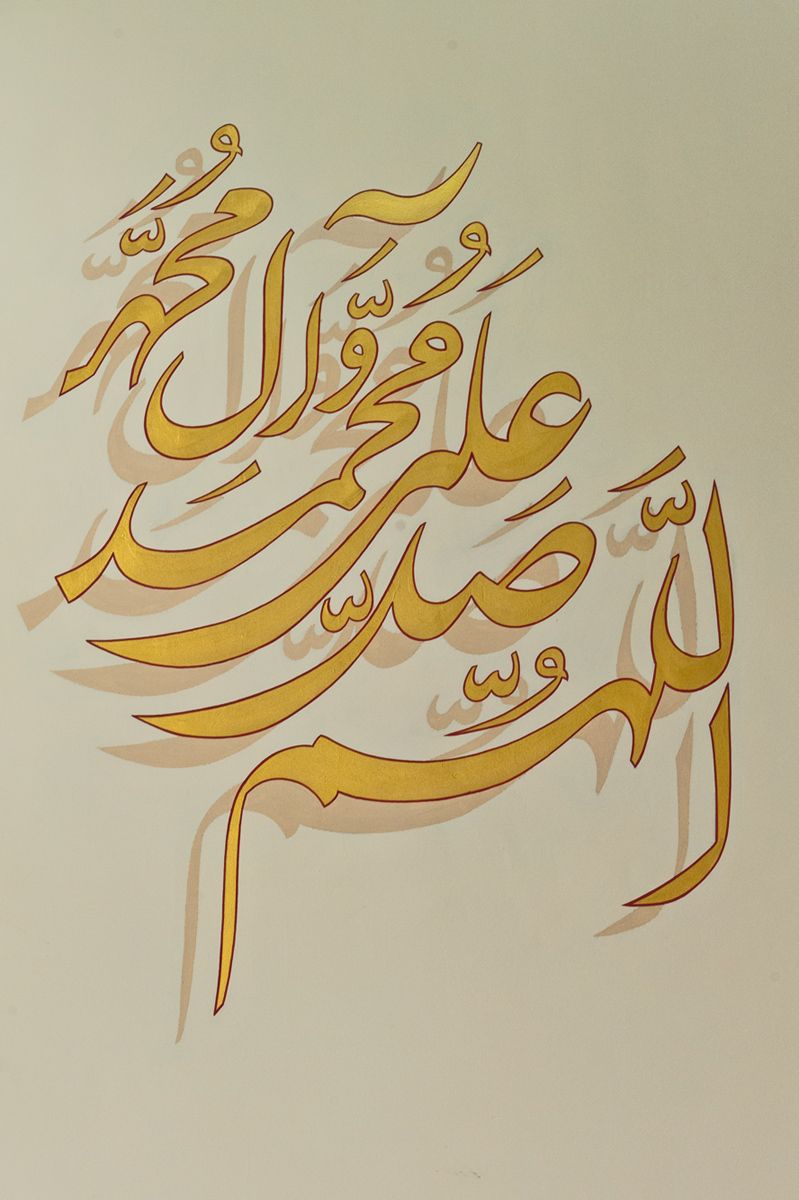 اللَّهُمَّ
صَلِّ
عَلَى مُحَمَّدٍ
وَّآلِ مُحَمَّدٍ